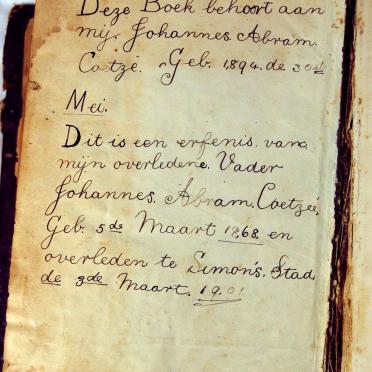 Deze Boek behoort aan
mij. Johannes Abram.
Coetzé. Geb. 1894. de 30ste
Mei.
Dit is een erfenis van
mijn overledene. Vader
Johannes. Abram. Coetzeé.
Geb. 5de Maart 1868 en
overleden te Simon's. Stad.
de 3de Maart. 1901